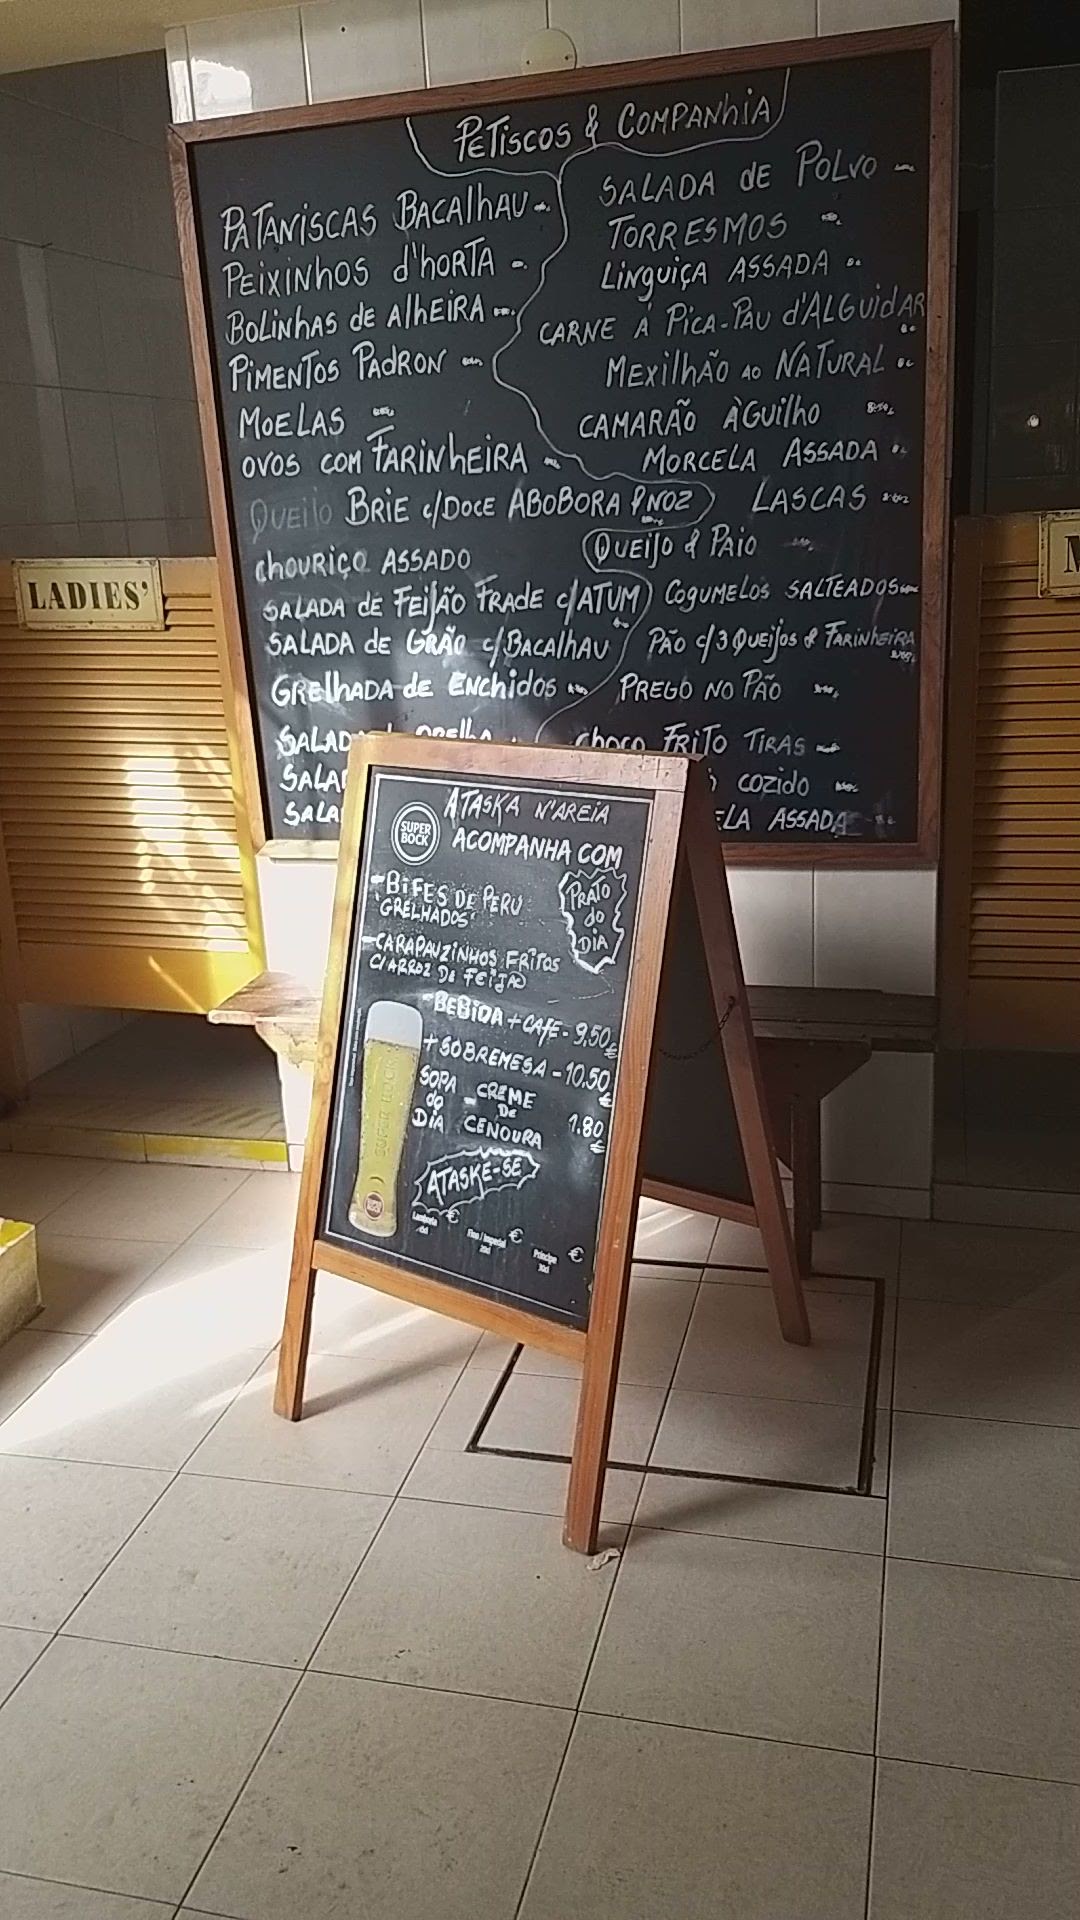 PETISCOS & COMPANHIA
PATANISCAS BACALHAU
PEIXINHOS d'HORTA
BOLINHAS de ALHEIRA
PIMENTOS PADRON
MOELAS
OVOS COM FARINHEIRA
QUEIJO BRIE c/DOCE ABOBORA & NOZ
CHOURIÇO ASSADO
SALADA DE FEIJÃO FRADE c/ATUM
SALADA de GRÃO c/BACALHAU
GRELHADA de ENCHIDOS
SALADA ORELHA
SALADA de POLVO
TORRESMOS
LINGUIÇA ASSADA
CARNE À PICA-PAU d'ALGUIDAR
MEXILHÃO AO NATURAL
CAMARÃO ÀGUILHO
MORCELA ASSADA
LASCAS
QUEIJO & PAIO
COGUMELOS SALTEADOS
PÃO c/3 QUEIJOS & FARINHEIRA
PREGO NO PÃO
CHOCO FRITO TIRAS
COZIDO
ASSADA
LADIES'
ATASKA N'AREIA
SUPER
BOCK
ACOMPANHA COM
PRATO
do
DIA
-BIFES DE PERU
GRELHADOS
-CARAPAUZINHOS FRITOS
C/ARROZ DE FEIJAO
-BEBIDA + CAFE - 9,50 €
+ SOBREMESA - 10.50 €
SOPA do DIA - CREME DE CENOURA 1.80 €
ATASKE-SE
SUPER BOCK
Lambreta €
Fino / Imperial €
20cl
Príncipe €
30cl